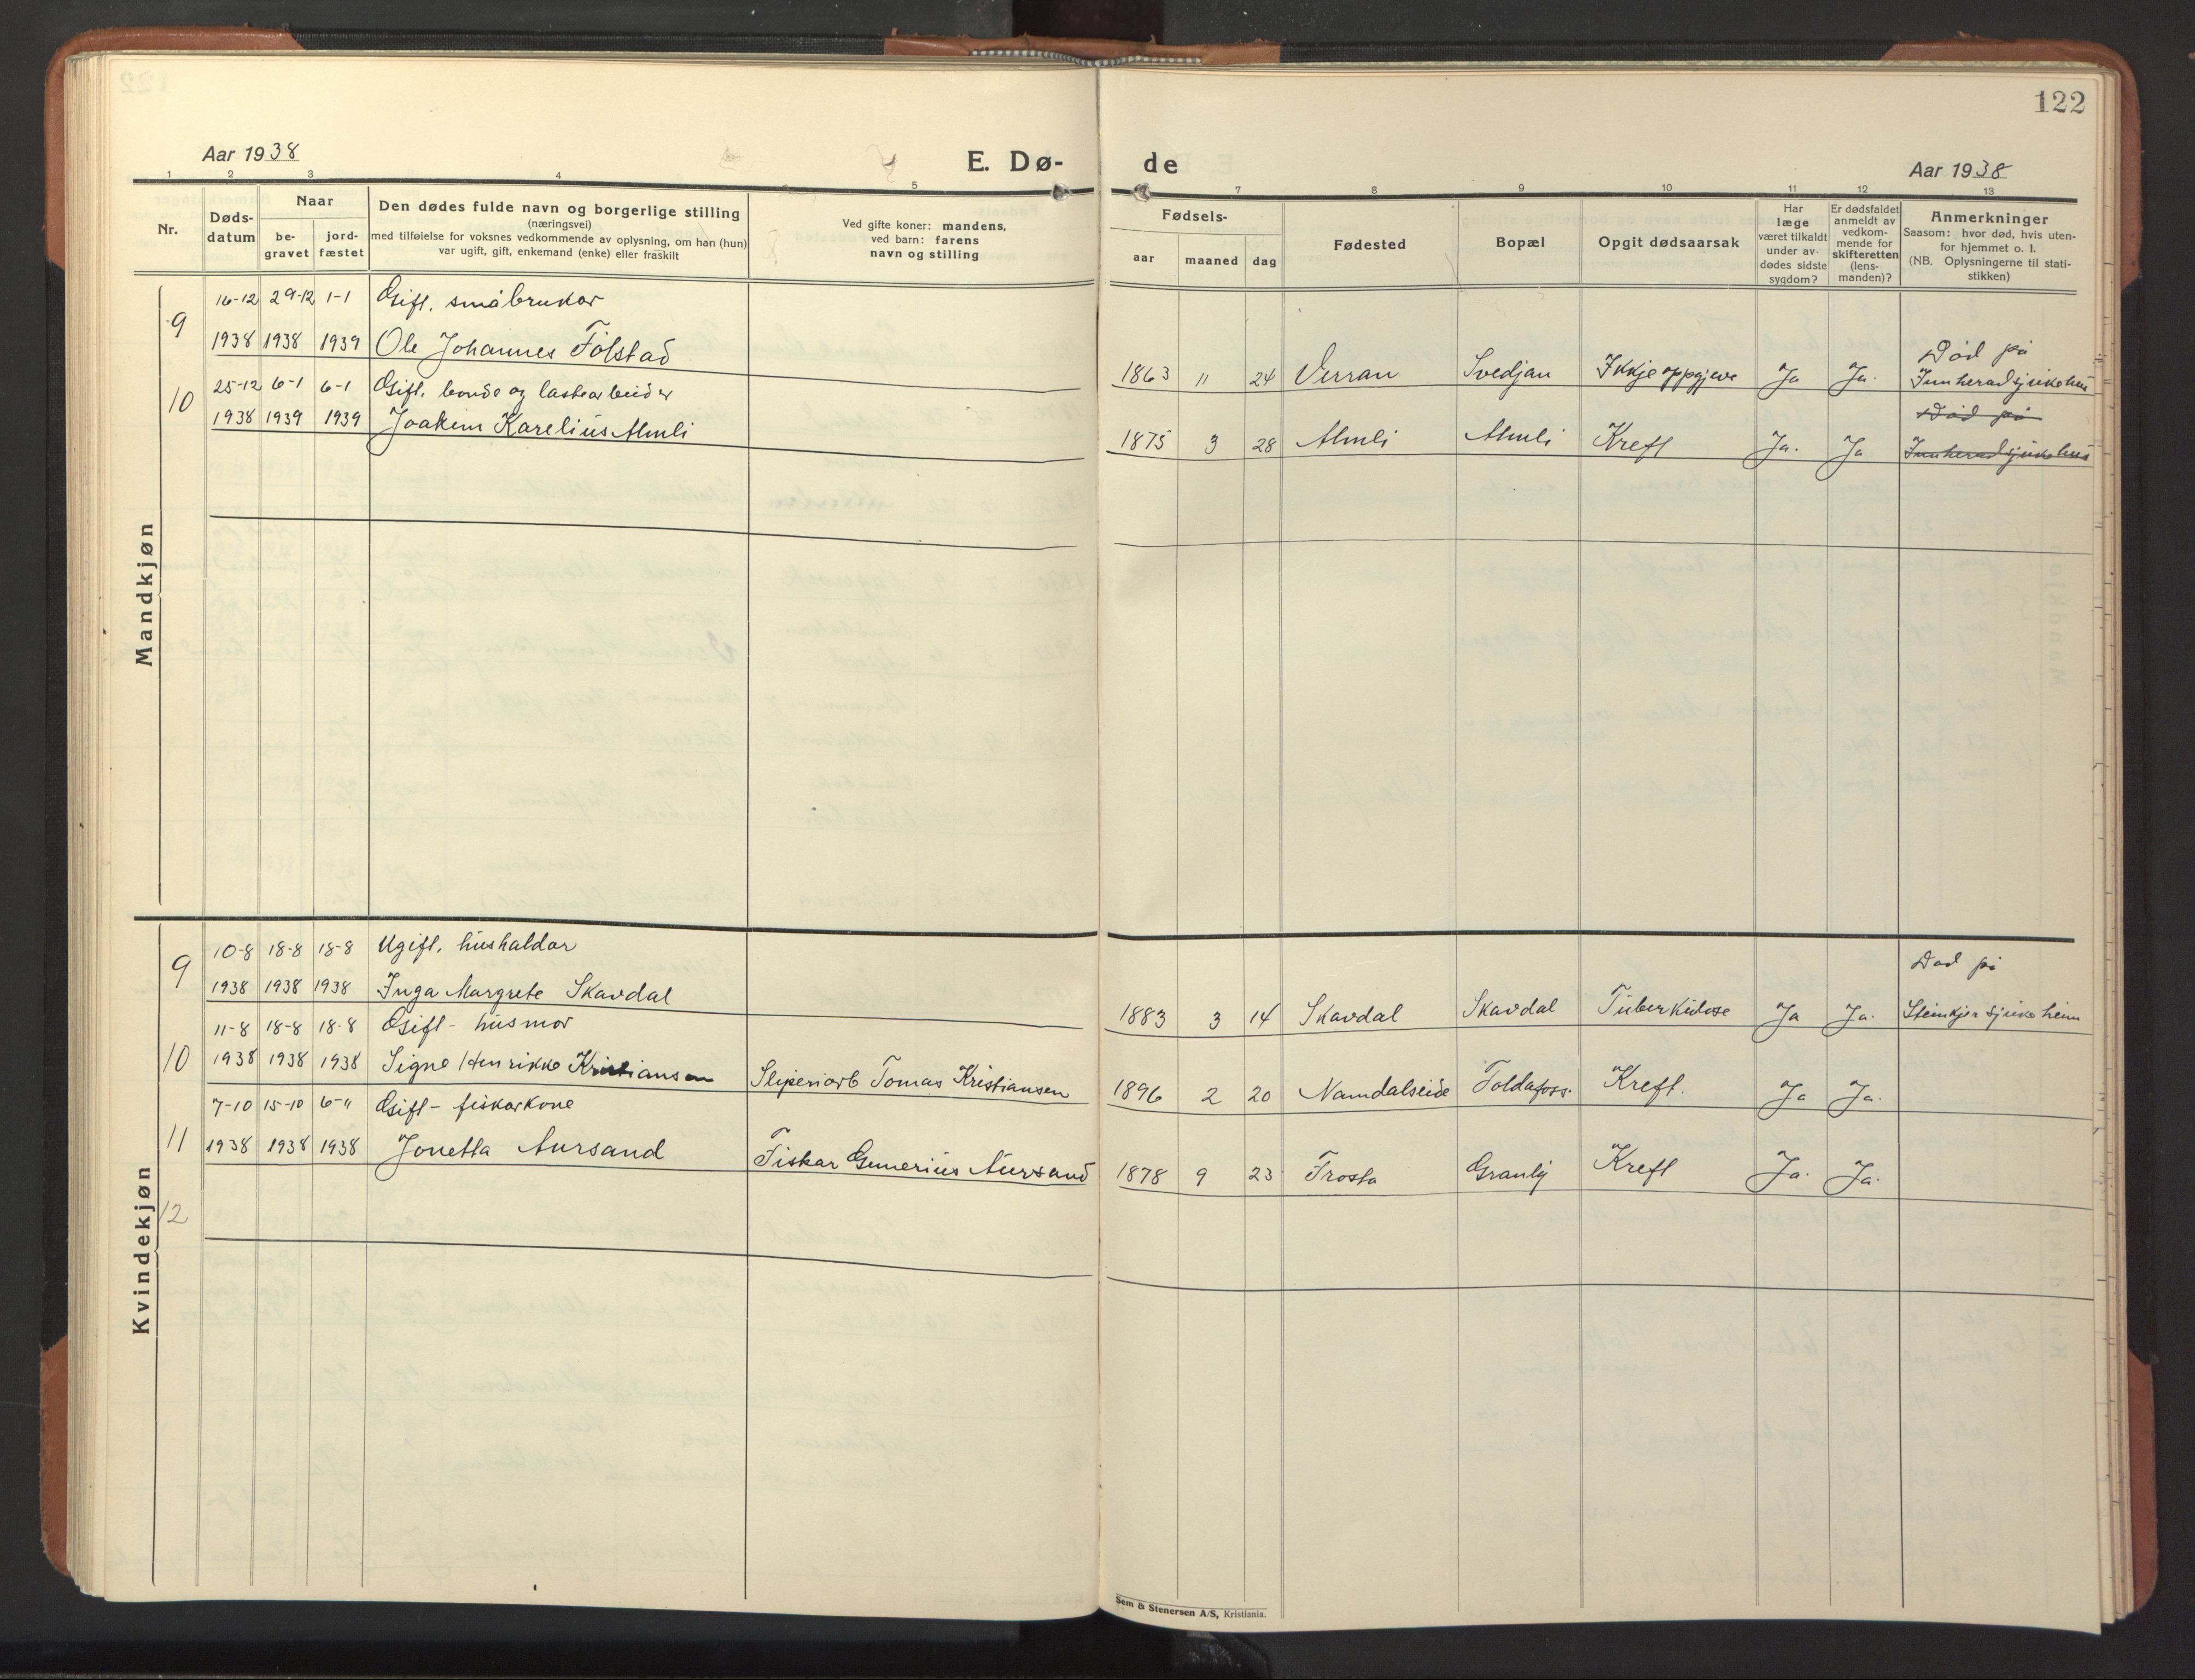 122
Aar 1938
E. Dø-
de
Aar 1938
1 2 3 4 5
7 8 9 10 11 12 13
Nr.
Døds-
datum
Naar
be-
gravet
jord-
fæstet
Den dødes fulde navn og borgerlige stilling
(næringsvei)
med tilføielse for voksnes vedkommende av oplysning, om han (hun)
var ugift, gift, enkemand (enke) eller fraskilt
Ved gifte koner: mandens,
ved barn: farens
navn og stilling
Fødsels-
aar maaned dag
Fødested
Bopæl
Opgit dødsaarsak
Har
læge
været tilkaldt
under av-
dødes sidste
sygdom?
Er dødsfaldet
anmeldt av
vedkom-
mende for
skifteretten
(lens-
manden)?
Anmerkninger
Saasom: hvor død, hvis uten-
for hjemmet o. l.
(NB. Oplysningerne til stati-
stikken)
Mandkjøn
9
16-12 29-12 1-1 Gift, småbrukar
1938 1938 1939 Ole Johannes Folstad
1863 11 24 Verran Svedjan Ikkje oppgjeve Ja Ja.
Død på
Innherad sjukehus
10
25-12 6-1 6-1 Gift, bonde og lastearbeider
1938 1939 1939 Joakim Karelius Almli
1875 3 28 Almli Almli Kreft Ja. Ja
Død på
Innherad sjukehus
Kvindekjøn
9
10-8 18-8 18-8 Ugift, hushaldar
1938 1938 1938 Inga Margrete Skavdal
1883 3 14 Skavdal Skavdal Tuberkulose Ja Ja.
Død på
Steinkjer sjukeheim
10
11-8 18-8 18-8 Gift - husmor
1938 1938 1938 Signe Henrikke Kristiansen Sliperiarb Tomas Kristiansen
1896 2 20 Namdalseide Foldafoss. Kreft. Ja Ja.
11
7-10 15-10 6-11 Gift - fiskarkone
1938 1938 1938 Jonetta Aursand Fiskar Gunerius Aursand
1878 9 23 Frosta Granly Kreft Ja. Ja.
12
Sem & Stenersen A/S, Kristiania.